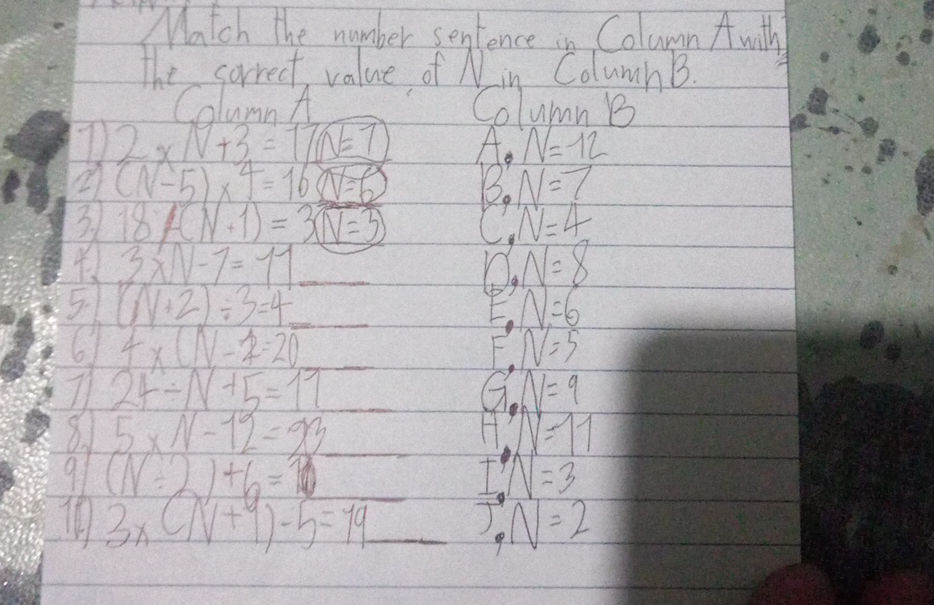 Match the number sentence in Column A with
the correct value of N in Column B.
Column A Column B
1) 2 x N + 3 = 17 N=7 A. N=12
2) (N-5) x 4 = 16 N=6 B. N=7
3) 18 (N+1) = 3 N=3 C. N=4
4. 3xN-7=11 D. N=8
5. (N+2) ÷ 3=4 E. N=6
6) 4 x (N-2=20 F. N=5
7) 24 ÷ N + 5 = 11 G. N=9
8. 5 x N - 12 = 23 H. N=11
9) (N ÷ 2) + 6 = 10 I. N=3
10) 3x (N+4) - 5 = 19 J. N=2